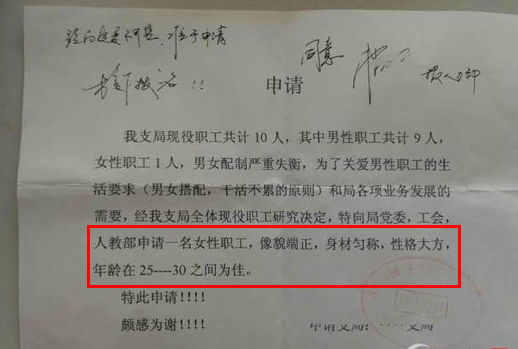 同意
申请
我支局现役职工共计 10 人，其中男性职工共计 9 人，
女性职工 1 人，男女配制严重失衡，为了关爱男性职工的生
活要求（男女搭配，干活不累的原则）和局各项业务发展的
需要，经我支局全体现役职工研究决定，特向局党委，工会，
人教部申请一名女性职工，像貌端正，身材匀称，性格大方，
年龄在 25----30 之间为佳。
特此申请！！！！
颇感为谢！！！！